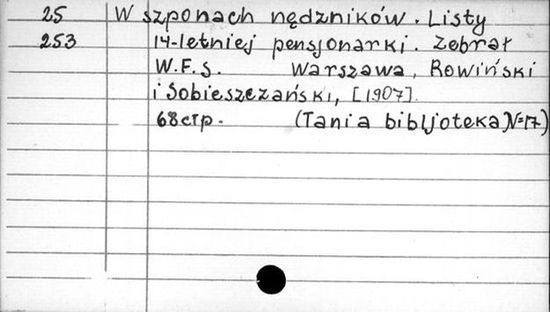 25 W szponach nędzników. Listy
253 14-letniej pensjonarki. Zebrał
W.F.S. Warszawa, Rowiński
i Sobieszczański, [1907].
68 стр. (Tania bibljoteka N=17)